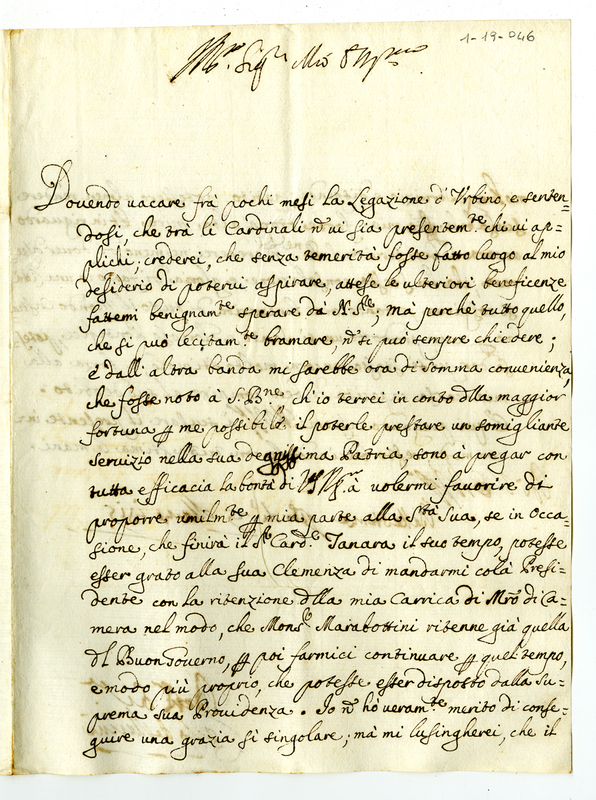 1-19-046
Sig.r Mio
Dovendo vacare frà pochi mesi la Legazione d'Urbino, e senten=
dosi, che trà li Cardinali nõ vi sia presentem.te chi vi ap=
plichi; crederei, che senza temerità fosse fatto luogo al mio
desiderio di potervi aspirare, attese le ulteriori beneficenze
fattemi benignam.te sperare dà N. S.re; mà perche tutto quello,
che si può lecitam.te bramare, nõ si può sempre chiedere;
e dall'altra banda mi sarebbe ora di somma convenienza,
che fosse noto à S. B.ne ch'io terrei in conto dlla maggior
fortuna ꝑ me possibile il poterle prestare un somigliante
servizio nella sua degnissima Patria, sono à pregar con
tutta efficacia la bontà di à volermi favorire di
proporre umilm.te ꝑ mia parte alla S.tà Sua, se in occa=
sione, che finirà il S.r Card.e Tanara il suo tempo, potesse
esser grato alla sua Clemenza di mandarmi colà Presi=
dente con la ritenzione dlla mia Carrica di Mrõ di Ca=
mera nel modo, che Mons.r Marabottini ritenne già quella
dl Buon Governo, ꝑ poi farmici continuare ꝑ quel tempo,
e modo più proprio, che potesse esser disposto dalla Su=
prema sua Providenza. Io nõ hò veram.te merito di conse=
guire una grazia sì singolare; mà mi lusingherei, che il